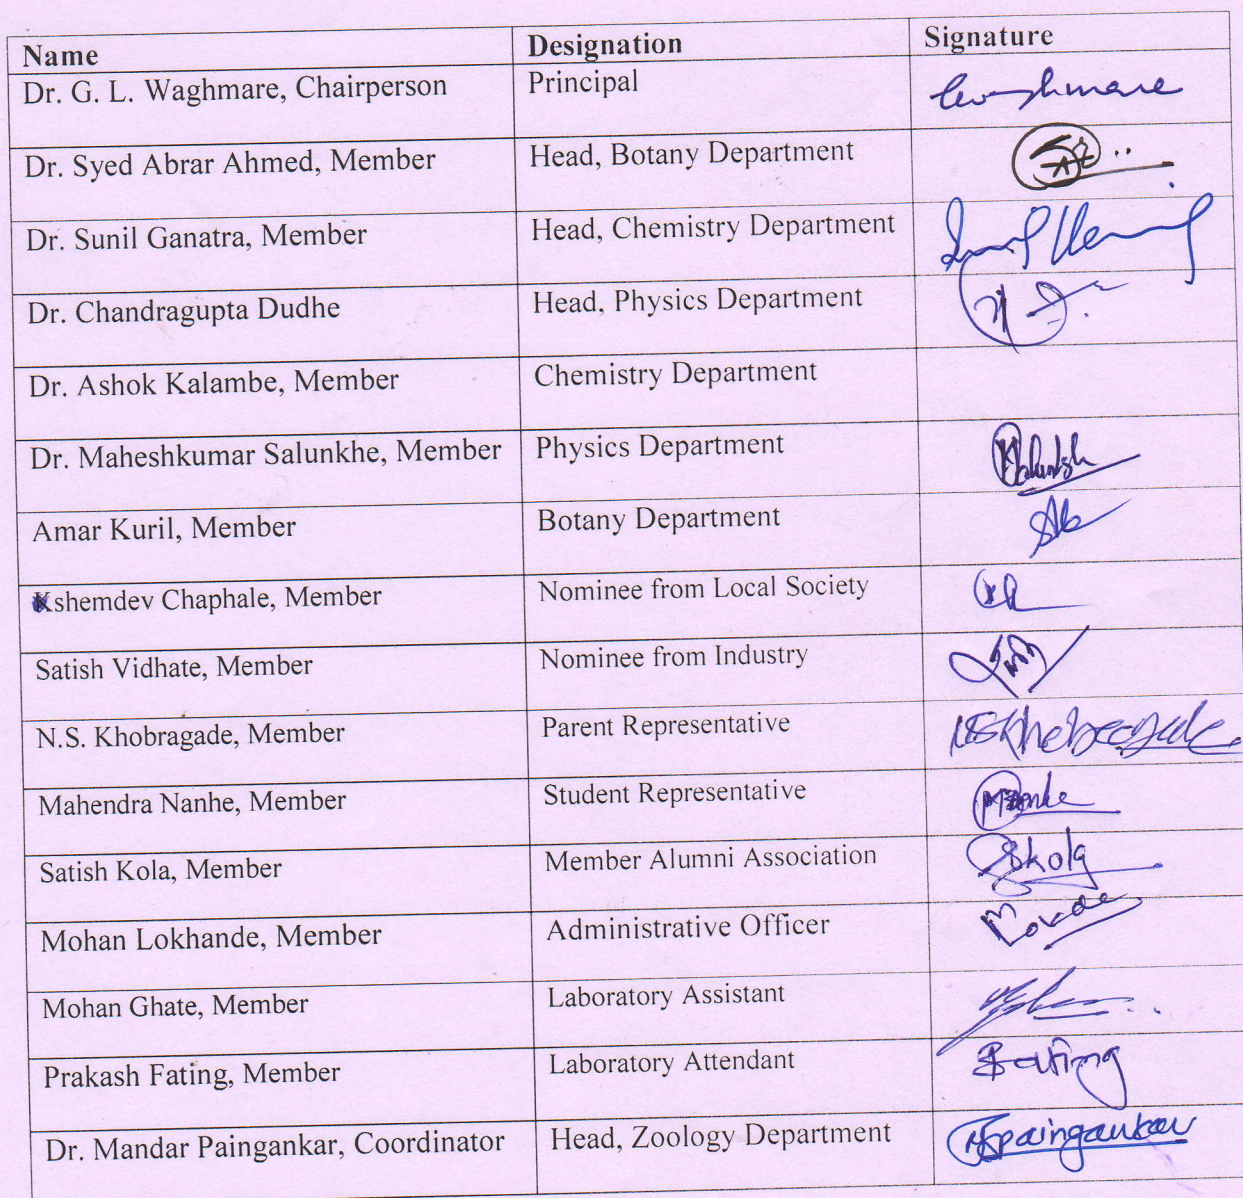 Name Designation Signature
Dr. G. L. Waghmare, Chairperson Principal Waghmare
Dr. Syed Abrar Ahmed, Member Head, Botany Department
Dr. Sunil Ganatra, Member Head, Chemistry Department
Dr. Chandragupta Dudhe Head, Physics Department
Dr. Ashok Kalambe, Member Chemistry Department
Dr. Maheshkumar Salunkhe, Member Physics Department
Amar Kuril, Member Botany Department
Kshemdev Chaphale, Member Nominee from Local Society
Satish Vidhate, Member Nominee from Industry
N.S. Khobragade, Member Parent Representative NSKhobragade
Mahendra Nanhe, Member Student Representative
Satish Kola, Member Member Alumni Association Skola
Mohan Lokhande, Member Administrative Officer
Mohan Ghate, Member Laboratory Assistant
Prakash Fating, Member Laboratory Attendant Fating
Dr. Mandar Paingankar, Coordinator Head, Zoology Department Paingankar